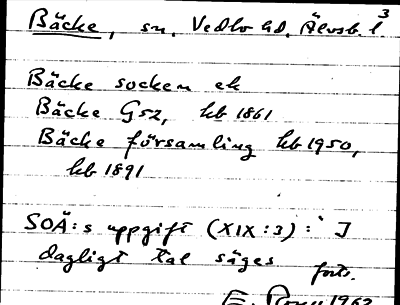 Bäcke, sn, Vedbo hd, Älvsb. l 3
Bäcke socken ek
Bäcke Gsz, kb 1861
Bäcke församling kb 1950,
kb 1891
SOÄ:s uppgift (XIX:3): I
dagligt tal säges forts.
E. 1962